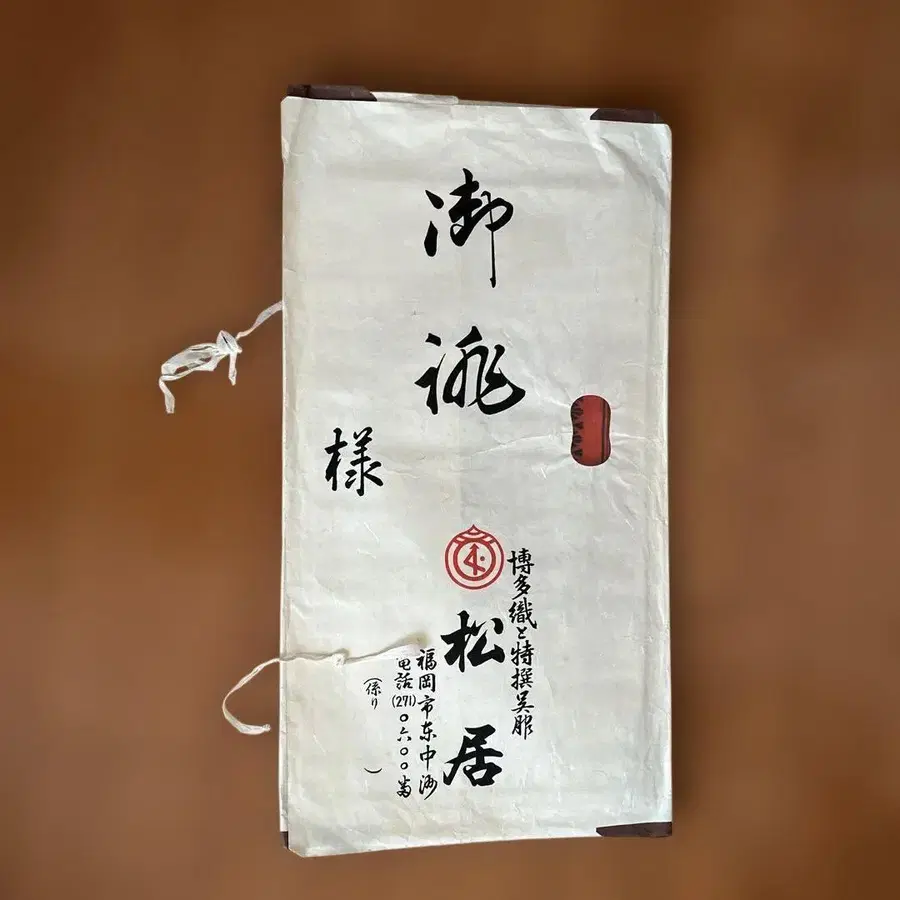 御誂
様
博多織と特撰呉服
松居
福岡市东中洲
電話(271)〇六〇〇番
(係り )